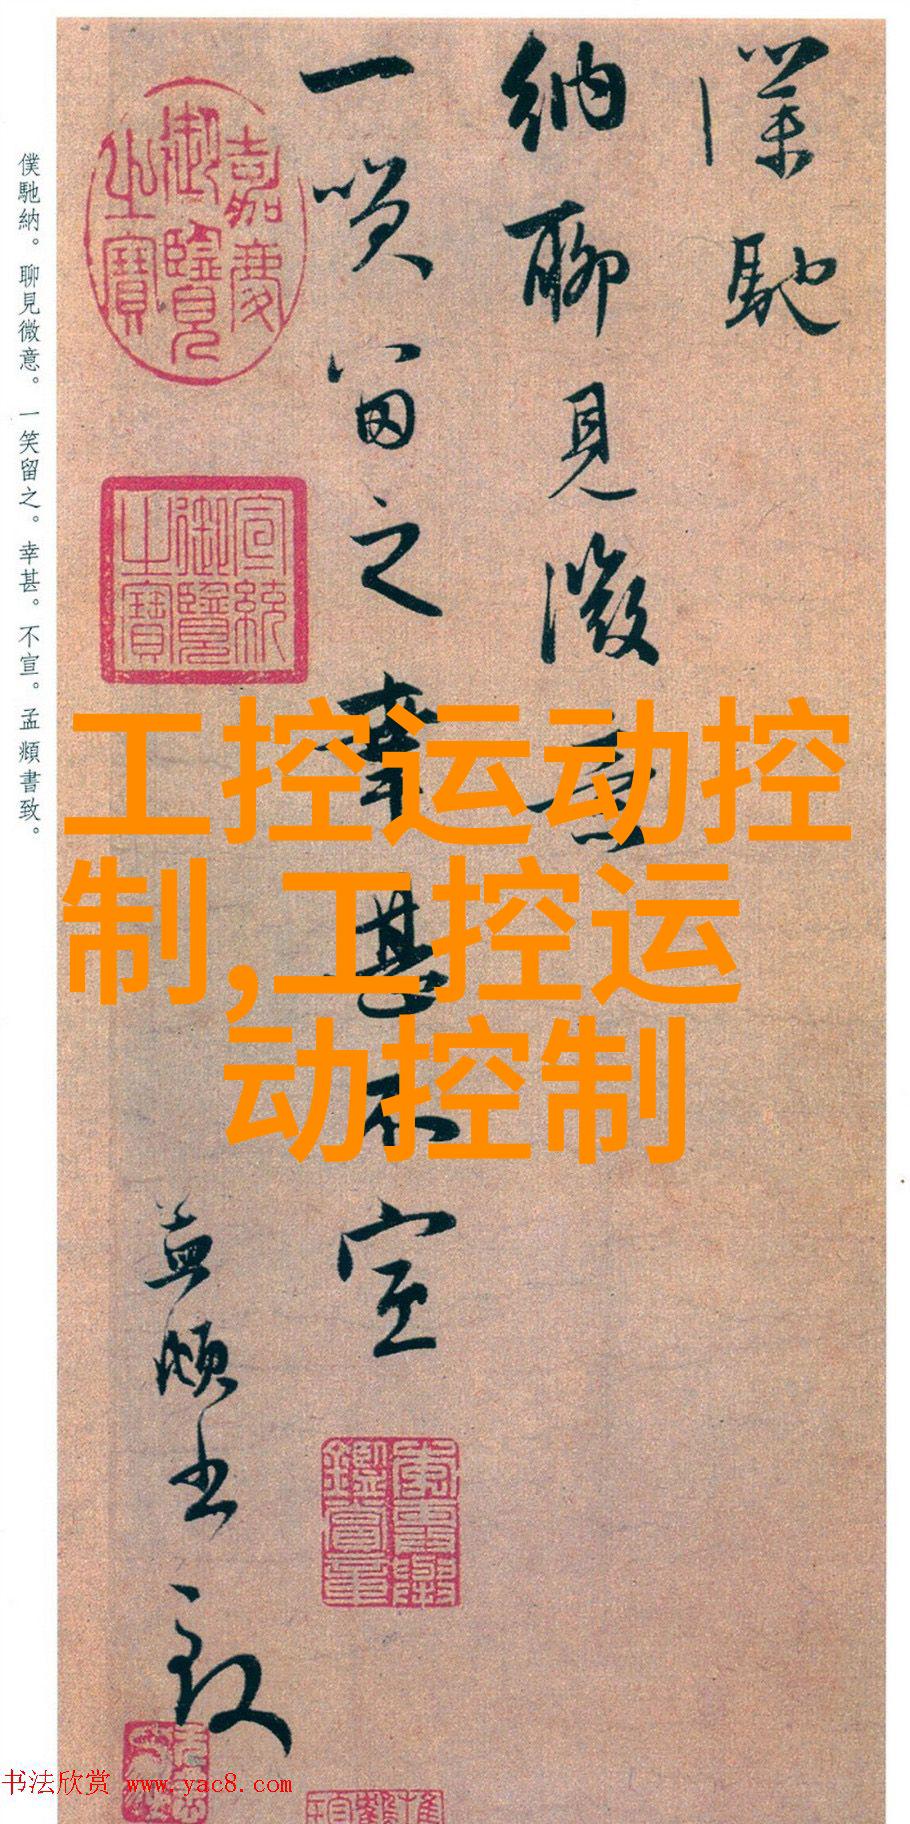 僕馳
納聊見微意
一笑留之幸甚不宣
孟頫書致
嘉慶御覽之寶
宣統御覽之寶
僕馳納。聊見微意。一笑留之。幸甚。不宣。孟頫書致。
工控运动控
制,工控运
动控制
书法欣赏 www.yac8.com